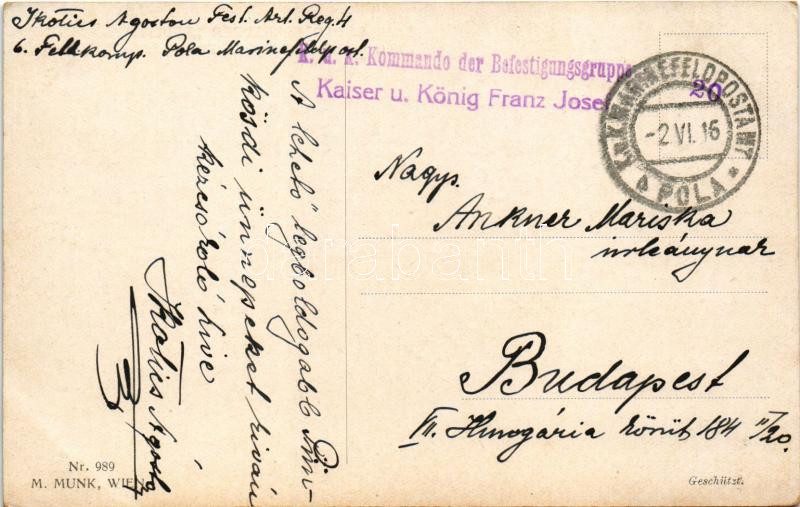 Skolics Agoston Fest. Art. Reg. 4
6. Feldkomp. Pola Marinefeldpost.
K. u. K. Kommando der Befestigungsgruppe
Kaiser u. König Franz Josef
20
K.u.K. MARINEFELDPOSTAMT
-2 VI. 16
POLA
A lehető legboldogabb Pün-
kösdi ünnepeket kiván
kézcsókoló hive
Agost
Nagys.
Ankner Mariska
urleánynak
Budapest
VII. Hungária körút 184 II/20.
Nr. 989
M. MUNK, WIEN
Geschützt.
darabanth